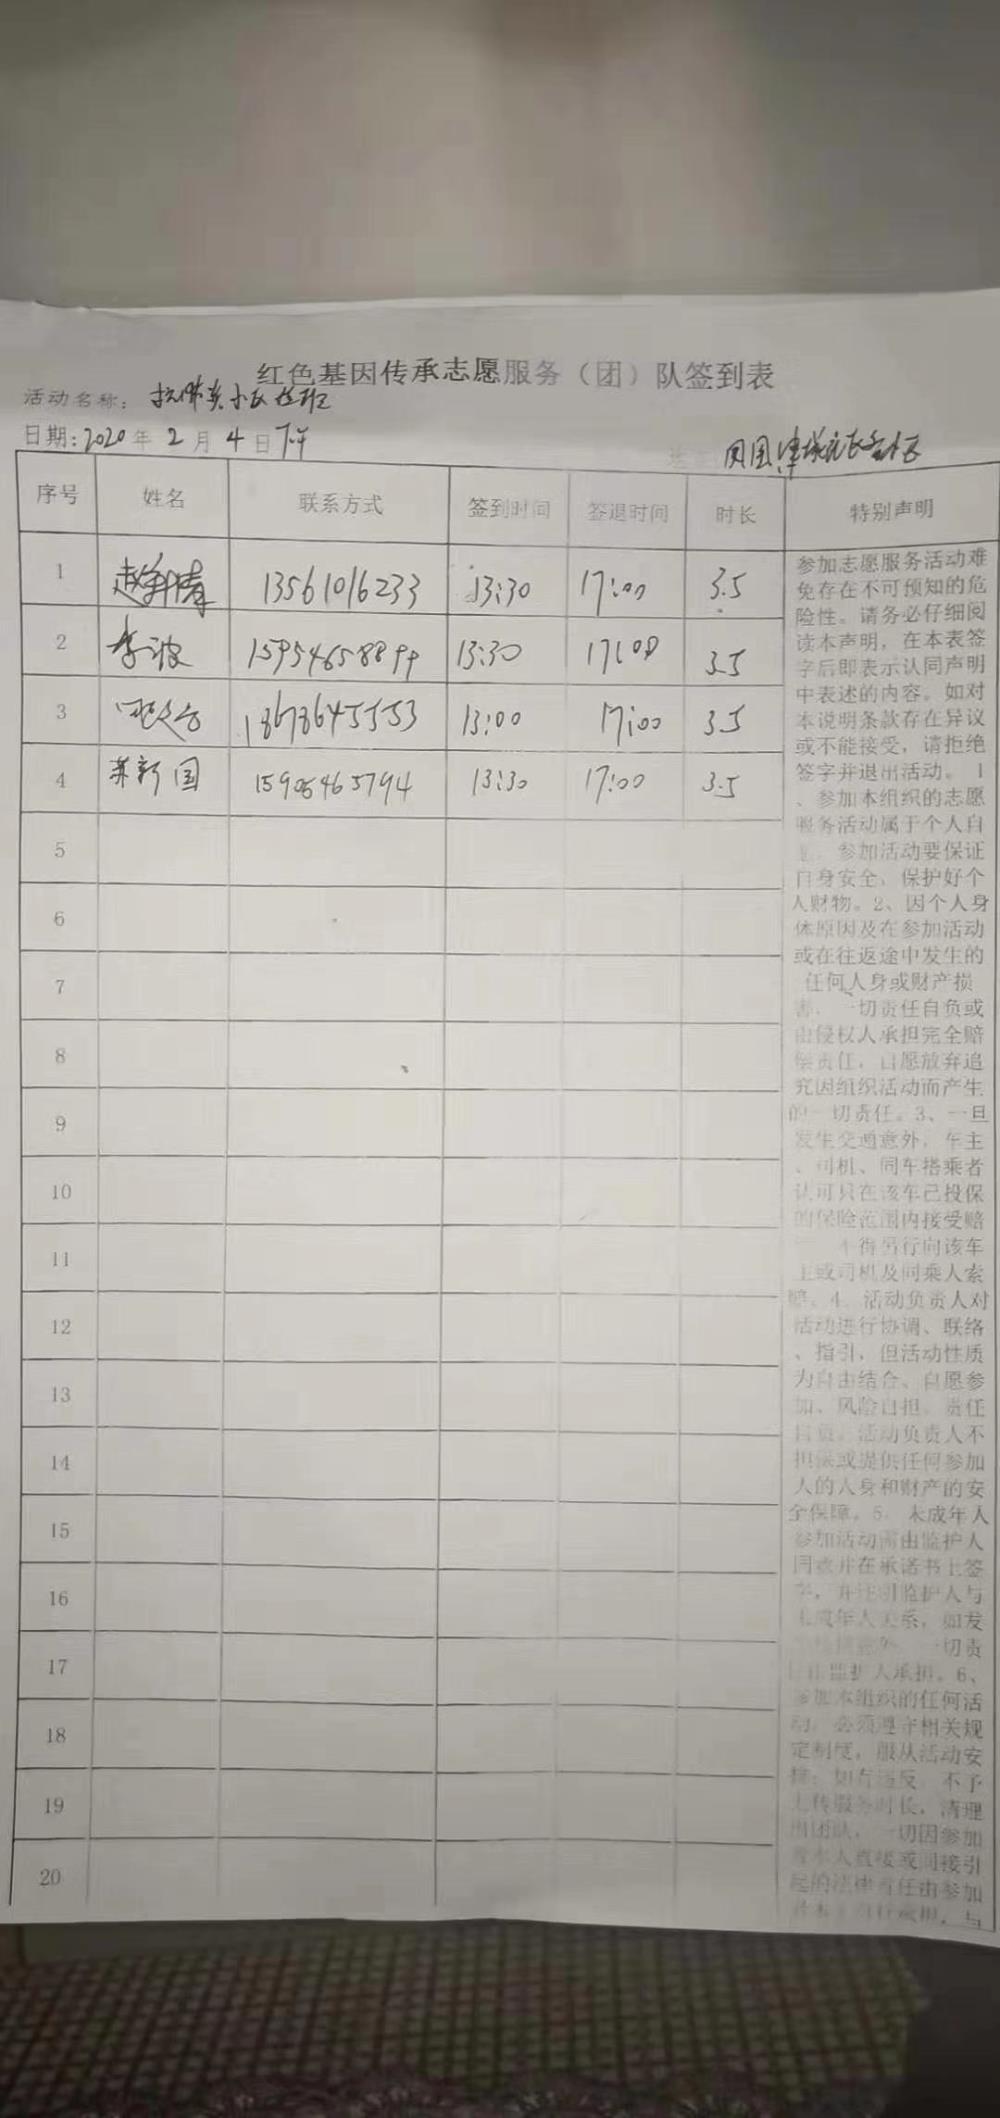 红色基因传承志愿服务（团）队签到表
活动名称：抗肺炎小区值班
日期：2020年2月4日下午
序号 姓名 联系方式 签到时间 签退时间 时长 特别声明
1 13561016233 13:30 17:00 3.5
2 李波 15954658899 13:30 17:00 3.5
3 18678645553 13:00 17:00 3.5
4 苏新国 15905465794 13:30 17:00 3.5
5
6
7
8
9
10
11
12
13
14
15
16
17
18
19
20
参加志愿服务活动难
免存在不可预知的危
险性。请务必仔细阅
读本声明，在本表签
字后即表示认同声明
中表述的内容。如对
本说明条款存在异议
或不能接受，请拒绝
签字并退出活动。1
、参加本组织的志愿
服务活动属于个人自
参加活动要保证
自身安全，保护好个
人财物。2、因个人身
体原因及在参加活动
或在往返途中发生的
任何人身或财产损
害，一切责任自负或
由侵权人承担完全赔
偿责任，自愿放弃追
究因组织活动而产生
的一切责任。3、一旦
发生交通意外，车主
、司机、同车搭乘者
认可只在该车已投保
的保险范围内接受赔
不得另行向该车
主或司机及同乘人索
赔。4、活动负责人对
活动进行协调、联络
、指引，但活动性质
为自由结合、自愿参
加、风险自担、责任
自负。活动负责人不
担保或提供任何参加
人的人身和财产的安
全保障。5、未成年人
参加活动需由监护人
同意并在承诺书上签
字，并注明监护人与
未成年人关系，如发
一切责
任由监护人承担。6、
参加本组织的任何活
动，必须遵守相关规
定制度，服从活动安
排；如有违反，不予
上传服务时长，清理
出团队，一切因参加
者本人直接或间接引
起的法律责任由参加